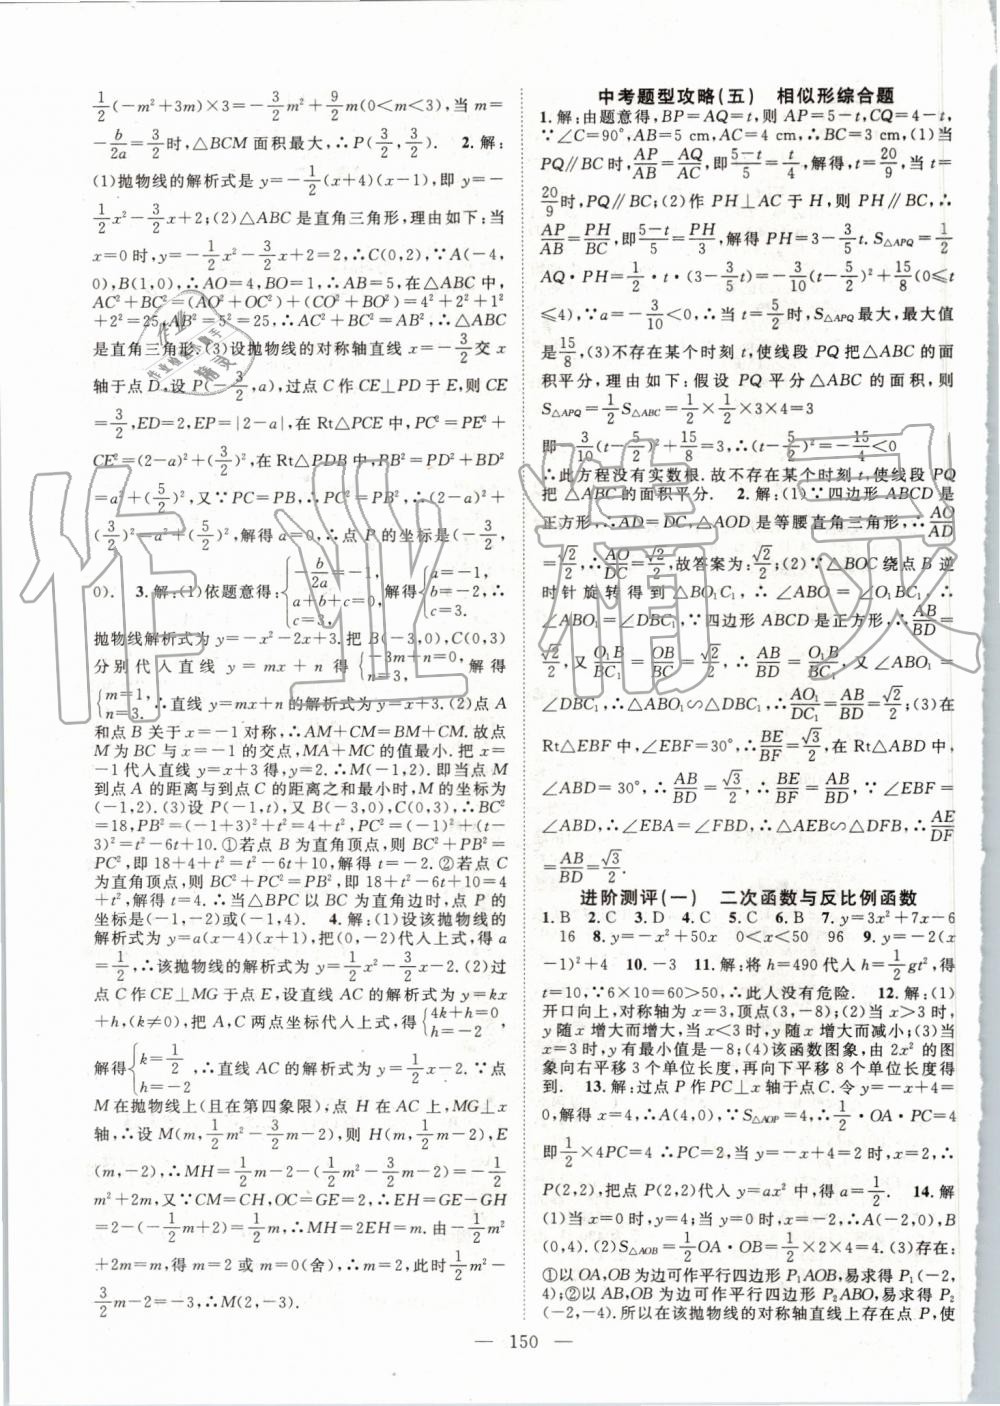 1/2(-m²+3m)×3=-3/2m²+9/2m(0<m<3),当m=
-b/2a=3/2时,△BCM面积最大,∴P(3/2,3/2). 2.解:
(1)抛物线的解析式是y=-1/2(x+4)(x-1),即y=-
1/2x²-3/2x+2;(2)△ABC是直角三角形,理由如下:当
x=0时,y=-1/2x²-3/2x+2=2,∴C(0,2).∵A(-4,
0),B(1,0),∴AO=4,BO=1,∴AB=5,在△ABC中,
AC²+BC²=(AO²+OC²)+(CO²+BO²)=4²+2²+1²
+2²=25,AB²=5²=25,∴AC²+BC²=AB²,∴△ABC
是直角三角形.(3)设抛物线的对称轴直线x=-3/2交x
轴于点D,设P(-3/2,a),过点C作CE⊥PD于E,则CE
=3/2,ED=2,EP=|2-a|,在Rt△PCE中,PC²=PE²+
CE²=(2-a)²+(3/2)²,在Rt△PDB中,PB²=PD²+BD²
=a²+(5/2)²,又∵PC=PB,∴PC²=PB²,∴(2-a)²+
(3/2)²=a²+(5/2)²,解得a=0,∴点P的坐标是(-3/2,
0). 3.解:(1)依题意得:{-b/2a=-1, a+b+c=0, c=3. 解得{a=-1, b=-2,∴ c=3.
抛物线解析式为y=-x²-2x+3.把B(-3,0),C(0,3)
分别代入直线y=mx+n得{-3m+n=0, n=3, 解得
{m=1, n=3. ∴直线y=mx+n的解析式为y=x+3.(2)点A
和点B关于x=-1对称,∴AM+CM=BM+CM.故点
M为BC与x=-1的交点,MA+MC的值最小.把x=
-1代入直线y=x+3得y=2.∴M(-1,2).即当点M
到点A的距离与到点C的距离之和最小时,M的坐标为
(-1,2).(3)设P(-1,t),又B(-3,0),C(0,3),∴BC²
=18,PB²=(-1+3)²+t²=4+t²,PC²=(-1)²+(t-
3)²=t²-6t+10.①若点B为直角顶点,则BC²+PB²=
PC²,即18+4+t²=t²-6t+10,解得t=-2.②若点C
为直角顶点,则BC²+PC²=PB²,即18+t²-6t+10=4
+t²,解得t=4.∴当△BPC以BC为直角边时,点P的
坐标是(-1,-2)或(-1,4). 4.解:(1)设该抛物线的
解析式为y=a(x-4)(x+1),将(0,-2)代入上式,得a
=1/2,∴该抛物线的解析式为y=1/2x²-3/2x-2.(2)过
点C作CE⊥MG于点E,设直线AC的解析式为y=kx
+h,(k≠0),把A,C两点坐标代入上式,得{4k+h=0 h=-2,
解得{k=1/2 h=-2,∴直线AC的解析式为y=1/2x-2.∵点
M在抛物线上(且在第四象限),点H在AC上,MG⊥x
轴,∴设M(m,1/2m²-3/2m-2),则H(m,1/2m-2),E
(m,-2),∴MH=1/2m-2-(1/2m²-3/2m-2)=-1/2m²
+2m,又∵CM=CH,OC=GE=2,∴EH=GE-GH
=2-(-1/2m+2)=1/2m,∴MH=2EH=m.由-1/2m²
+2m=m,得m=2或m=0(舍),∴此时1/2m²-
3/2m-2=-3,∴M(2,-3).
中考题型攻略(五) 相似形综合题
1.解:由题意得,BP=AQ=t,则AP=5-t,CQ=4-t,
∵∠C=90°,AB=5 cm,AC=4 cm,∴BC=3 cm,(1)当
PQ∥BC时,AP/AB=AQ/AC,即(5-t)/5=t/4,解得,t=20/9,当t=
20/9时,PQ∥BC;(2)作PH⊥AC于H,则PH∥BC,∴
AP/AB=PH/BC,即(5-t)/5=PH/3,解得PH=3-3/5t.S△APQ=1/2
AQ·PH=1/2·t·(3-3/5t)=-3/10(t-5/2)²+15/8(0≤t
≤4),∵a=-3/10<0,∴当t=5/2时,S△APQ最大,最大值
是15/8,(3)不存在某个时刻t,使线段PQ把△ABC的面
积平分,理由如下:假设PQ平分△ABC的面积,则
S△APQ=1/2S△ABC=1/2×1/2×3×4=3
即-3/10(t-5/2)²+15/8=3,∴(t-5/2)²=-15/4<0
∴此方程没有实数根.故不存在某个时刻t,使线段PQ
把△ABC的面积平分. 2.解:(1)∵四边形ABCD是
正方形,∴AD=DC,△AOD是等腰直角三角形,∴AO/AD
=√2/2,∴AO/DC=√2/2,故答案为:√2/2;(2)∵△BOC绕点B逆
时针旋转得到△BO₁C₁,∴∠ABO=∠O₁BC₁,∴
∠ABO₁=∠DBC₁,∵四边形ABCD是正方形,∴AB/BD=
√2/2,又O₁B/BC₁=OB/BC=√2/2,∴AB/BD=O₁B/BC₁,又∠ABO₁=
∠DBC₁,∴△ABO₁∽△DBC₁,∴AO₁/DC₁=AB/BD=√2/2;(3)在
Rt△EBF中,∠EBF=30°,∴BE/BF=√3/2,在Rt△ABD中,
∠ABD=30°,∴AB/BD=√3/2,∴BE/BF=AB/BD,∵∠EBF=
∠ABD,∴∠EBA=∠FBD,∴△AEB∽△DFB,∴AE/DF
=AB/BD=√3/2.
进阶测评(一) 二次函数与反比例函数
1.B 2.C 3.D 4.C 5.C 6.B 7.y=3x²+7x-6
16 8.y=-x²+50x 0<x<50 96 9.y=-2(x
-1)²+4 10.-3 11.解:将h=490代入h=1/2gt²,得
t=10,∵6×10=60<64,∴此人没有危险. 12.解:(1)
开口向上,对称轴为x=3,顶点(3,-8);(2)当x>3时,
y随x增大而增大,当x<3时,y随x增大而减小;(3)当
x=3时,y有最小值是-8;(4)该函数图象,由2x²的图
象向右平移3个单位长度,再向下平移8个单位长度得
到的. 13.解:过点P作PC⊥x轴于点C.令y=-x+4=
0,解得x=4,∴A(4,0),∵S△AOP=4,∴1/2·OA·PC=4
即1/2×4PC=4∴PC=2,当y=-x+4=2时,x=2,∴
P(2,2),把点P(2,2)代入y=ax²中,得a=1/2. 14.解
(1)当x=0时,y=4;当y=0时,x=-2,∴A(-2,0),B
(0,4).(2)S△AOB=1/2OA·OB=1/2×2×4=4.(3)存在:
①以OA,OB为边可作平行四边形P₁AOB,易求得P₁(-2,
4);②以AB,OB为边可作平行四边形P₂ABO,易求得P₂
(-2,-4).所以在该抛物线的对称轴直线上存在点P,使
— 150 —
作业精灵